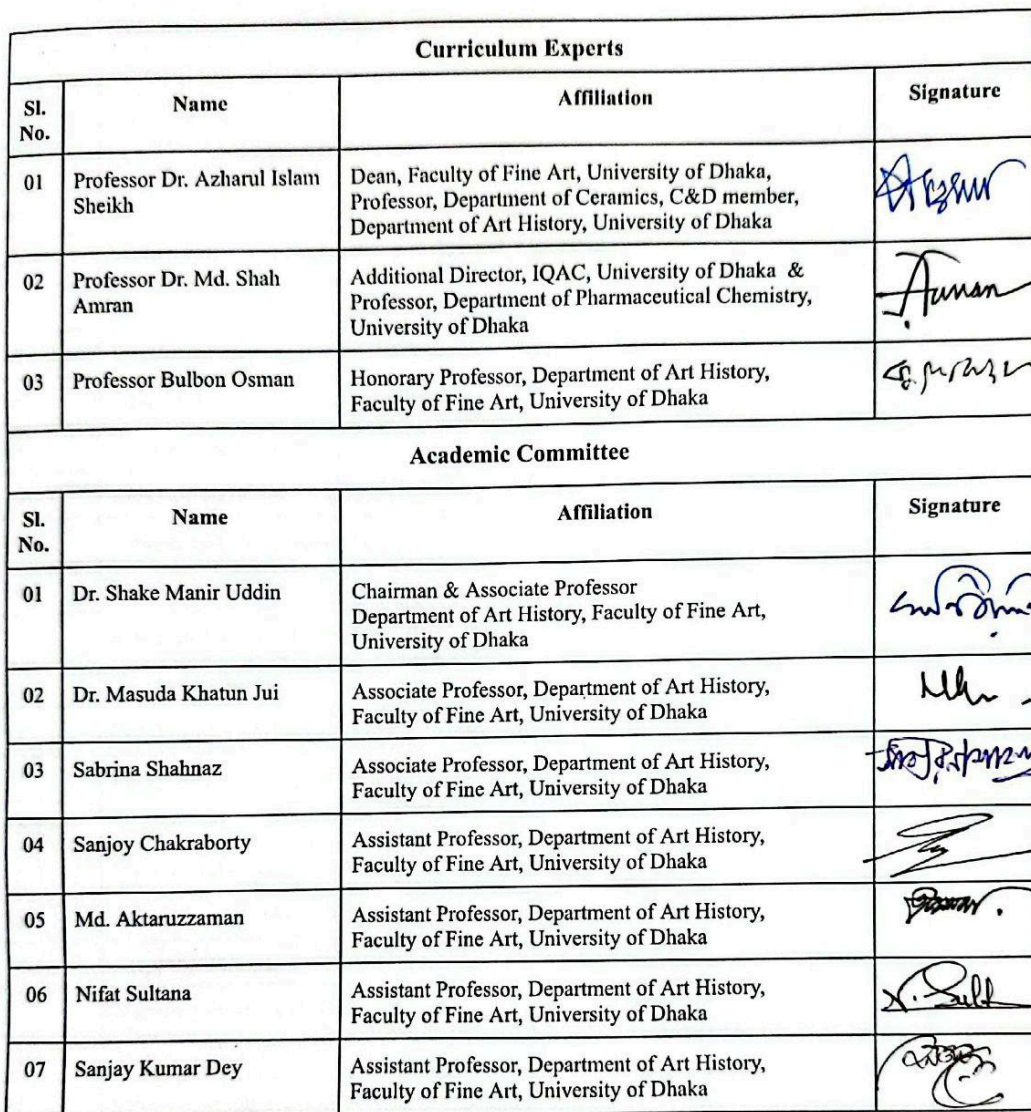 Curriculum Experts
Sl. No.
Name
Affiliation
Signature
01
Professor Dr. Azharul Islam
Sheikh
Dean, Faculty of Fine Art, University of Dhaka,
Professor, Department of Ceramics, C&D member,
Department of Art History, University of Dhaka
02
Professor Dr. Md. Shah
Amran
Additional Director, IQAC, University of Dhaka &
Professor, Department of Pharmaceutical Chemistry,
University of Dhaka
03
Professor Bulbon Osman
Honorary Professor, Department of Art History,
Faculty of Fine Art, University of Dhaka
Academic Committee
Sl. No.
Name
Affiliation
Signature
01
Dr. Shake Manir Uddin
Chairman & Associate Professor
Department of Art History, Faculty of Fine Art,
University of Dhaka
02
Dr. Masuda Khatun Jui
Associate Professor, Department of Art History,
Faculty of Fine Art, University of Dhaka
03
Sabrina Shahnaz
Associate Professor, Department of Art History,
Faculty of Fine Art, University of Dhaka
04
Sanjoy Chakraborty
Assistant Professor, Department of Art History,
Faculty of Fine Art, University of Dhaka
05
Md. Aktaruzzaman
Assistant Professor, Department of Art History,
Faculty of Fine Art, University of Dhaka
06
Nifat Sultana
Assistant Professor, Department of Art History,
Faculty of Fine Art, University of Dhaka
07
Sanjay Kumar Dey
Assistant Professor, Department of Art History,
Faculty of Fine Art, University of Dhaka